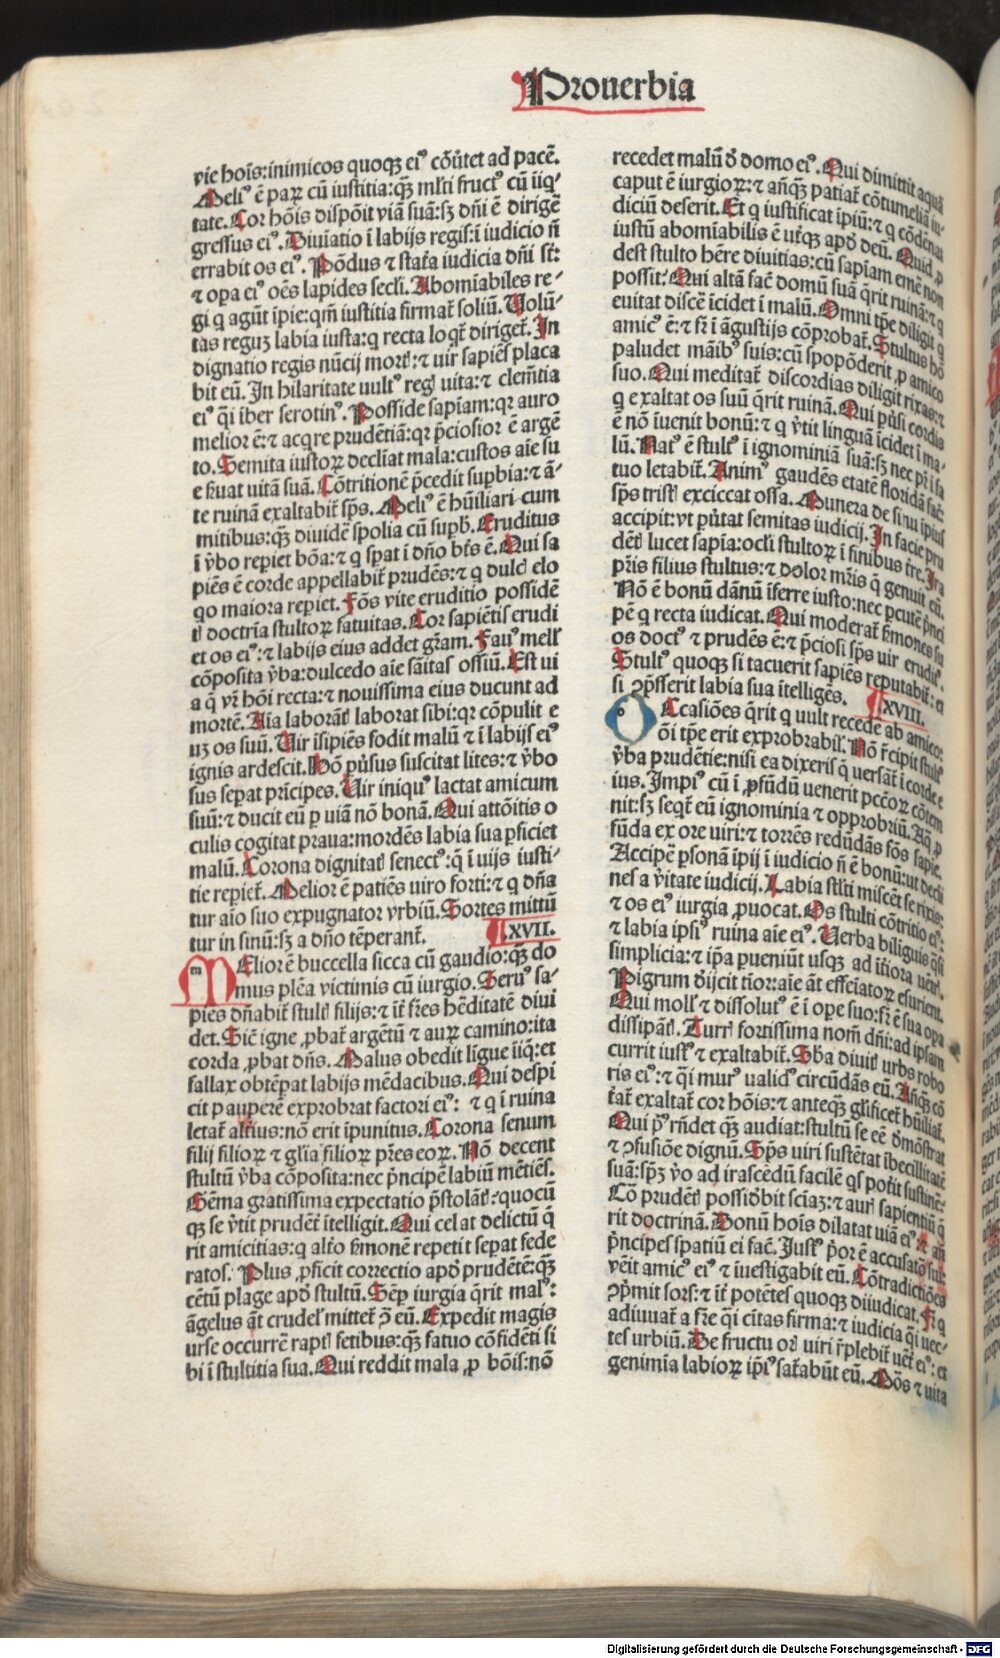 Prouerbia
vie hoīs: inimicos quoqꝫ ei⁹ cōũtet ad pacē.
Meli⁹ ē parꝝ cū iustitia: qꝫ ml̄ti fruct⁹ cū iiq̄⸗
tate. Cor hōis dispōit viā suā: sꝫ dn̄i ē dirigē
gressus ei⁹. Diuīatio ī labijs regis: ī iudicio n̄
errabit os ei⁹. Pōdus ⁊ stat̄a iudicia dn̄i st̄:
⁊ oꝑa ei⁹ oēs lapides secl̄i. Abomīabiles re⸗
gi q̄ agūt īpie: qm̄ iustitia firmat̄ soliū. Uolū⸗
tas reguꝫ labia iusta: q̄ recta loqt̄ diriget̄. In
dignatio regis nūcij mort̄: ⁊ uir sapiēs placa
bit eū. In hilaritate uult⁹ reḡ uita: ⁊ clem̄tia
ei⁹ q̄i iber serotin⁹. Posside sapiam: qꝛ auro
melior ē: ⁊ acqre prudētiā: qꝛ p̄ciosior ē argē
to. Semita iustoꝝ declīat mala: custos aīe su
e ẜuat uitā suā. Cōtritionē p̄cedit supbia: ⁊ ā⸗
te ruinā exaltabit̄ sp̄s. Meli⁹ ē hūiliari cum
mitibus: qꝫ diuidē spolia cū supb̄. Eruditus
ī v̄bo reꝑiet bōa: ⁊ q sꝑat ī dn̄o bt̄s ē. Qui sa
piēs ē corde appellabit̄ prudēs: ⁊ q dulc̄ elo
qo maiora reꝑiet. Fōs vite eruditio possidē
t̄ doctrīa stultoꝝ fatuitas. Cor sapiētis erudi
et os ei⁹: ⁊ labijs eius addet gr̄am. Fau⁹ mell̄
cōposita v̄ba: dulcedo aīe sāitas ossiū. Est ui
a q̄ vr̄ hōi recta: ⁊ nouissima eius ducunt ad
mortē. Aīa laborāt̄ laborat sibi: qꝛ cōpulit e
uꝫ os suū. Uir īsipiēs fodit malū ⁊ ī labijs ei⁹
ignis ardescit. Hō ꝑuſus suscitat lites: ⁊ v̄bo
sus seꝑat prīcipes. Uir iniqu⁹ lactat amicum
suū: ⁊ ducit eū ꝑ uiā nō bonā. Qui attōitis o
culis cogitat praua: mordēs labia sua ꝑficiet
malū. Corona dignitat̄ senect⁹: q̄ ī uijs iusti⸗
tie reꝑiet̄. Melior ē patiēs uiro forti: ⁊ q dn̄a
tur aīo suo expugnator vrbiū. Sortes mittū
tur in sinū: sꝫ a dn̄o tēperant̄. XVII.
MElior ē buccella sicca cū gaudio: qꝫ do
mus plēa victimis cū iurgio. Seru⁹ sa⸗
piēs dn̄abit̄ stult̄ filijs: ⁊ īt̄ fr̄es hēditatē diui
det. Sic̄ igne ꝓbat̄ argētū ⁊ auꝝ camino: ita
corda ꝓbat dn̄s. Malus obedit līgue iiq̄: et
fallax obtēꝑat labijs mēdacibus. Qui despi
cit pauperē exprobrat factori ei⁹: ⁊ q ī ruina
letat̄ alt̄ius: nō erit īpunitus. Corona senum
filij filioꝝ ⁊ gl̄ia filioꝝ pr̄es eoꝝ. Nō decent
stultū v̄ba cōposita: nec p̄ncipē labiū mētiēs.
Gēma gratissima expectatio p̄stolāt̄: quocū
qꝫ se v̄tit prudēt̄ ītelligit. Qui celat delictū q̄
rit amicitias: q alt̄o ẜmonē repetit seꝑat fede
ratos. Plus ꝓficit correctio apd̄ prudētē: qꝫ
cētū plage apd̄ stultū. Sēꝑ iurgia q̄rit mal⁹:
āgelus āt crudel̄ mittet̄ ꝯ̄ eū. Expedit magis
urse occurrē rapt̄ fetibus: qꝫ fatuo cōfidēti si
bi ī stultitia sua. Qui reddit mala ꝓ bōis: nō
recedet malū d̄ domo ei⁹. Qui dimittit aquā
caput ē iurgioꝝ: ⁊ añqꝫ patiat̄ cōtumeliā iu⸗
diciū deserit. Et q iustificat īpiū: ⁊ q cōdēnat
iustū abomīabilis ē ut̄qꝫ apd̄ deū. Quid ꝓ
dest stulto hēre diuitias: cū sapiam emē non
possit: Qui altā fac̄ domū suā q̄rit ruinā: ⁊ q
euitat discē īcidet ī malū. Omni tꝑe diligit q
amic⁹ ē: ⁊ fr̄ ī āgustijs cōprobat̄. Stultus hō
plaudet māib⁹ suis: cū spopōderit ꝓ amico
suo. Qui meditat̄ discordias diligit rixas: ⁊
q exaltat os suū q̄rit ruinā. Qui ꝑuſi cordis
ē nō iuenit bonū: ⁊ q v̄tit linguā īcidet ī ma⸗
lū. Nat⁹ ē stult⁹ ī ignominiā suā: sꝫ nec pr̄ ī fa
tuo letabit̄. Anim⁹ gaudēs etatē floridā fac̄:
sp̄s trist̄ exciccat ossa. Munera de sinu ipius
accipit: vt ꝑuſtat semitas iudicij. In facie pru
dēt̄ lucet sapīa: ocl̄i stultoꝝ ī finibus tr̄e. Ira
pr̄is filius stultus: ⁊ dolor mr̄is q̄ genuit eū.
Nō ē bonū dānū īferre iusto: nec ꝑcutē p̄nci
pē q recta iudicat. Qui moderat̄ ẜmones su
os doct⁹ ⁊ prudēs ē: ⁊ p̄ciosi sp̄s uir erudit⁹.
Stult⁹ quoqꝫ si tacuerit sapiēs reputabit̄: et
si ꝯp̄sserit labia sua ītelligēs. XVIII.
OCcasiōes q̄rit q uult recedē ab amico:
ōi tꝑe erit exprobrabil̄. Nō r̄cipit stult⁹
v̄ba prudētie: nisi ea dixeris q̄ versāt̄ ī corde e
ius. Impi⁹ cū ī ꝓfūdū uenerit pcc̄oꝝ cōtem
nit: sꝫ seqt̄ eū ignominia ⁊ opprobriū. Aq̄ ꝓ
fūda ex ore uiri: ⁊ torrēs redūdās fōs sapie.
Accipē ꝑsonā īpij ī iudicio n̄ ē bonū: ut decli
nes a v̄itate iudicij. Labia stl̄ti miscēt se rixis:
⁊ os ei⁹ iurgia ꝓuocat. Os stulti cōtritio ei⁹:
⁊ labia ipsi⁹ ruina aīe ei⁹. Uerba bilīguis q̄si
simplicia: ⁊ ip̄a pueniūt usqꝫ ad īt̄iora uēt̄.
Pigrum d̄ijcit tīor: aīe āt effeīatoꝝ esurient.
Qui moll̄ ⁊ dissolut⁹ ē ī oꝑe suo: fr̄ ē sua oꝑa
dissipāt̄. Turr̄ fortissima nom̄ dn̄i: ad ipsam
currit iust⁹ ⁊ exaltabit̄. Sb̄a diuit̄ urbs robo
ris ei⁹: ⁊ q̄i mur⁹ ualid⁹ circūdās eū. Añqꝫ cō
t̄at̄ exaltat̄ cor hōis: ⁊ anteqꝫ gl̄ificet̄ hūiliat̄.
Qui p⁹ rn̄det qꝫ audiat: stultū se eē d̄mōstrat
⁊ ꝯfusiōe dignū. Sp̄s uiri sustētat ībecillitatē
suā: spꝫ v̄o ad irascēdū facilē qs pot̄it sustinē:
Cō prudēt̄ possid̄bit scīaꝫ: ⁊ aur̄ sapientiū q̄
rit doctrinā. Donū hoīs dilatat uiā ei⁹ ⁊ an̄
p̄ncipes spatiū ei fac̄. Iust⁹ p̄or ē accusatō sui:
vēit amic⁹ ei⁹ ⁊ īuestigabit eū. Cōtradictiōes
ꝯp̄mit sors: ⁊ īt̄ potētes quoqꝫ diiudicat. Fr̄ q
adiuuat̄ a fr̄e q̄i cītas firma: ⁊ iudicia q̄i uec⸗
tes urbiū. De fructu or̄ uiri r̄plebit̄ uēt̄ ei⁹: et
genimīa labioꝝ ip̄i⁹ sat̄abūt eū. Mōs ⁊ uita
Digitalisierung gefördert durch die Deutsche Forschungsgemeinschaft - DFG